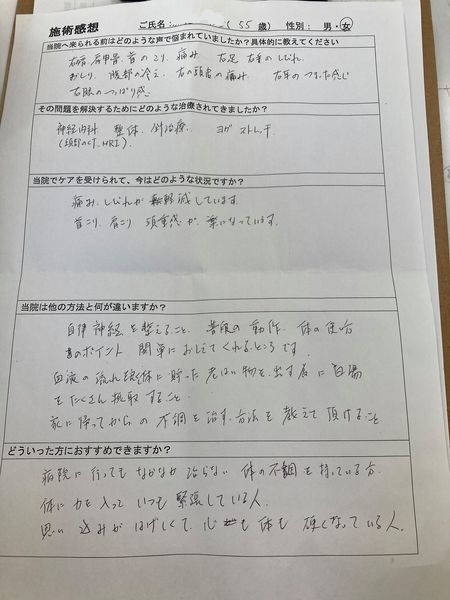 施術感想 ご氏名: ( 55 歳) 性別: 男・女
当院へ来られる前はどのような声で悩まれていましたか?具体的に教えてください
右肩 肩甲骨、首の こり、痛み 右足 右手の しびれ、
おしり、腹部の冷え、右の頭の痛み 右耳の つまった感じ
右眼の つっぱり感
その問題を解決するためにどのような治療されてきましたか?
神経内科 整体、針治療、 ヨガ ストレッチ
(頭部のCT、MRI)
当院でケアを受けられて、今はどのような状況ですか?
痛み、しびれが 軽減しています
首こり、肩こり 頭重感が 楽になっています。
当院は他の方法と何が違いますか?
自律神経を整えること、普段の動作、体の使い方
のポイント 簡単に おしえてくれるところです。
血液の流れ 体に貯った老はい物を出す為に白湯
をたくさん摂取すること。
家に帰ってからの不調を治す方法を教えて頂けること
どういった方におすすめできますか?
病院に行っても なかなか治らない 体の不調を持っている方
体に力を入って いつも緊張している人。
思い込みが はげしくて、心も体も 硬くなっている人。